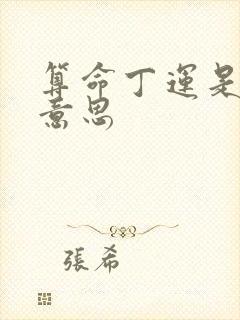 算命丁運是
意思
張希